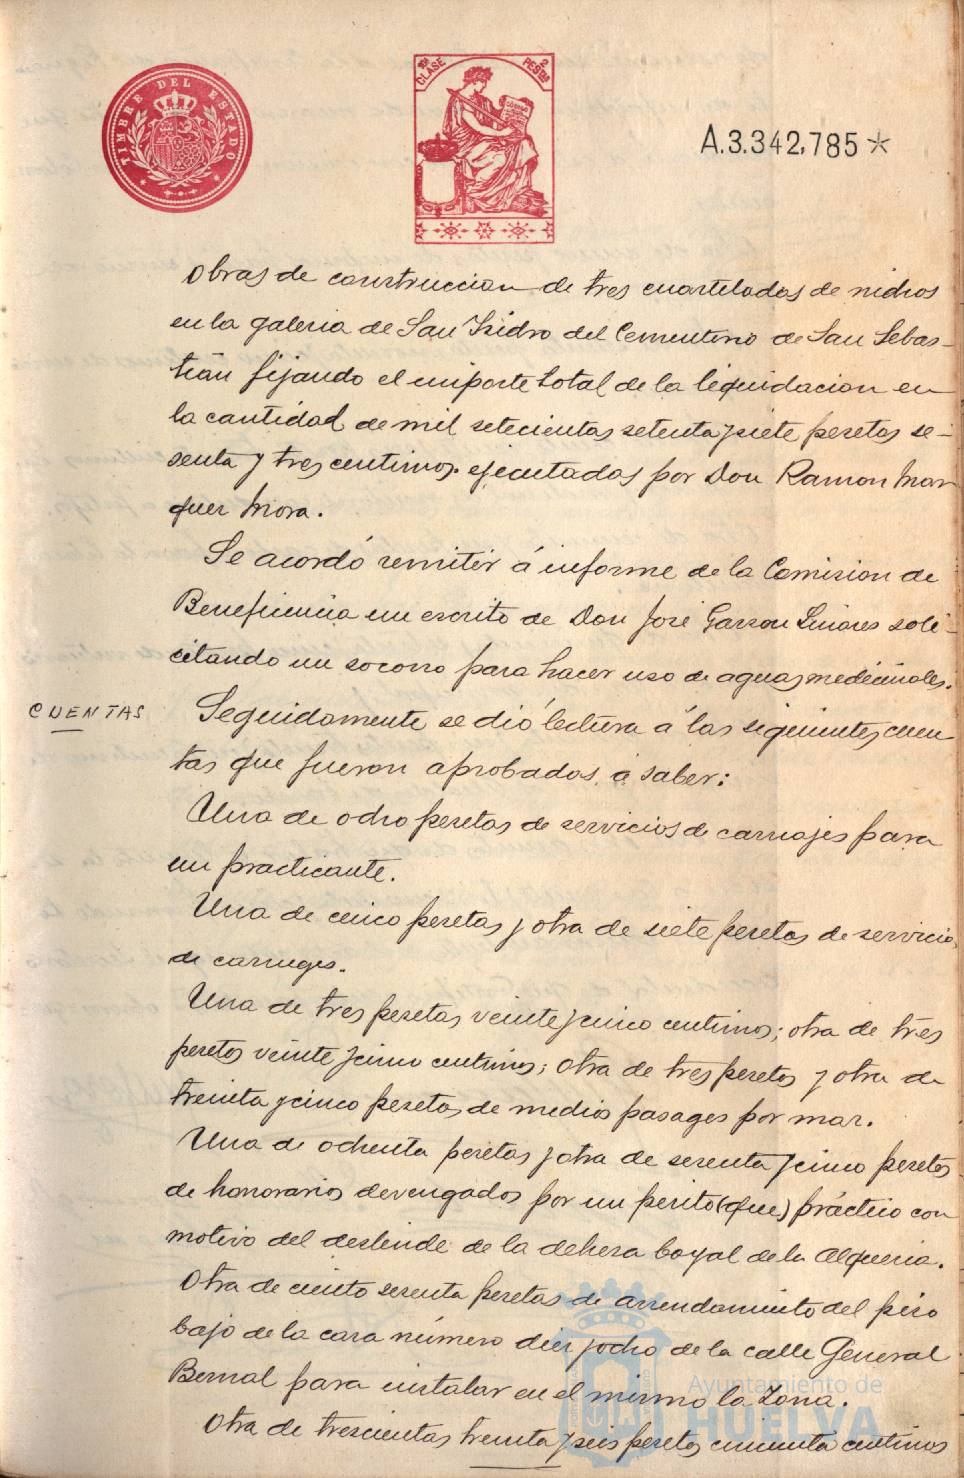 TIMBRE DEL ESTADO
10ª CLASE
2 PESTAS
A.3.342,785*
Obras de construccion de tres cuarteladas de nichos
en la galeria de San Isidro del Cementerio de San Sebas-
tián fijando el importe total de la liquidacion en
la cantidad de mil setecientas setenta y siete pesetas se-
senta y tres centimos. ejecutadas por Don Ramon Mar
quez Mora.
Se acordó remitir á informe de la Comision de
Beneficencia un escrito de Don José Garzon Linares soli-
citando un socorro para hacer uso de aguas medicinales.
CUENTAS
Seguidamente se dió lectura á las siguientes cuen
tas que fueron aprobadas á saber:
Una de ocho pesetas de servicios de carruajes para
un practicante.
Una de cinco pesetas y otra de siete pesetas de servicio
de carruages.
Una de tres pesetas veinte y cinco centimos; otra de tres
pesetas veinte y cinco centimos; otra de tres pesetas y otra de
treinta y cinco pesetas de medios pasages por mar.
Una de ochenta pesetas y otra de sesenta y cinco pesetas
de honorarios devengados por un perito (que) práctico con
motivo del deslinde de la dehesa boyal de la Alqueria.
Otra de ciento sesenta pesetas de arrendamiento del piso
bajo de la casa número diez y ocho de la calle General
Bernal para instalar en el mismo la Zona.
Otra de trescientas treinta y seis pesetas cincuenta centimos
Ayuntamiento de
HUELVA